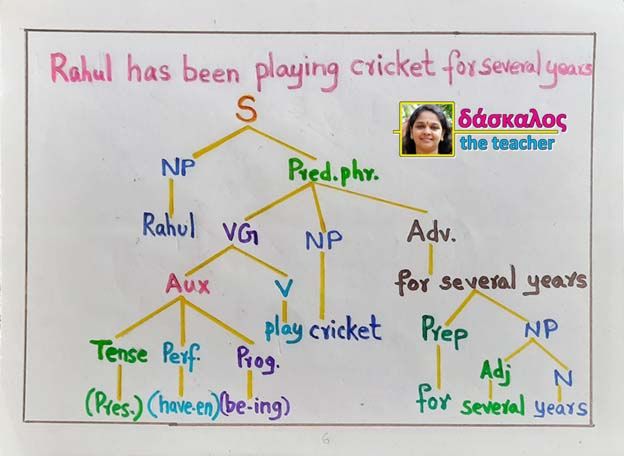 Rahul has been playing cricket for several years
S
δάσκαλος
the teacher
NP Pred.phr.
Rahul VG NP Adv.
Aux V for several years
play cricket Prep NP
Tense Perf. Prog. Adj N
(Pres.) (have-en) (be-ing) for several years
6